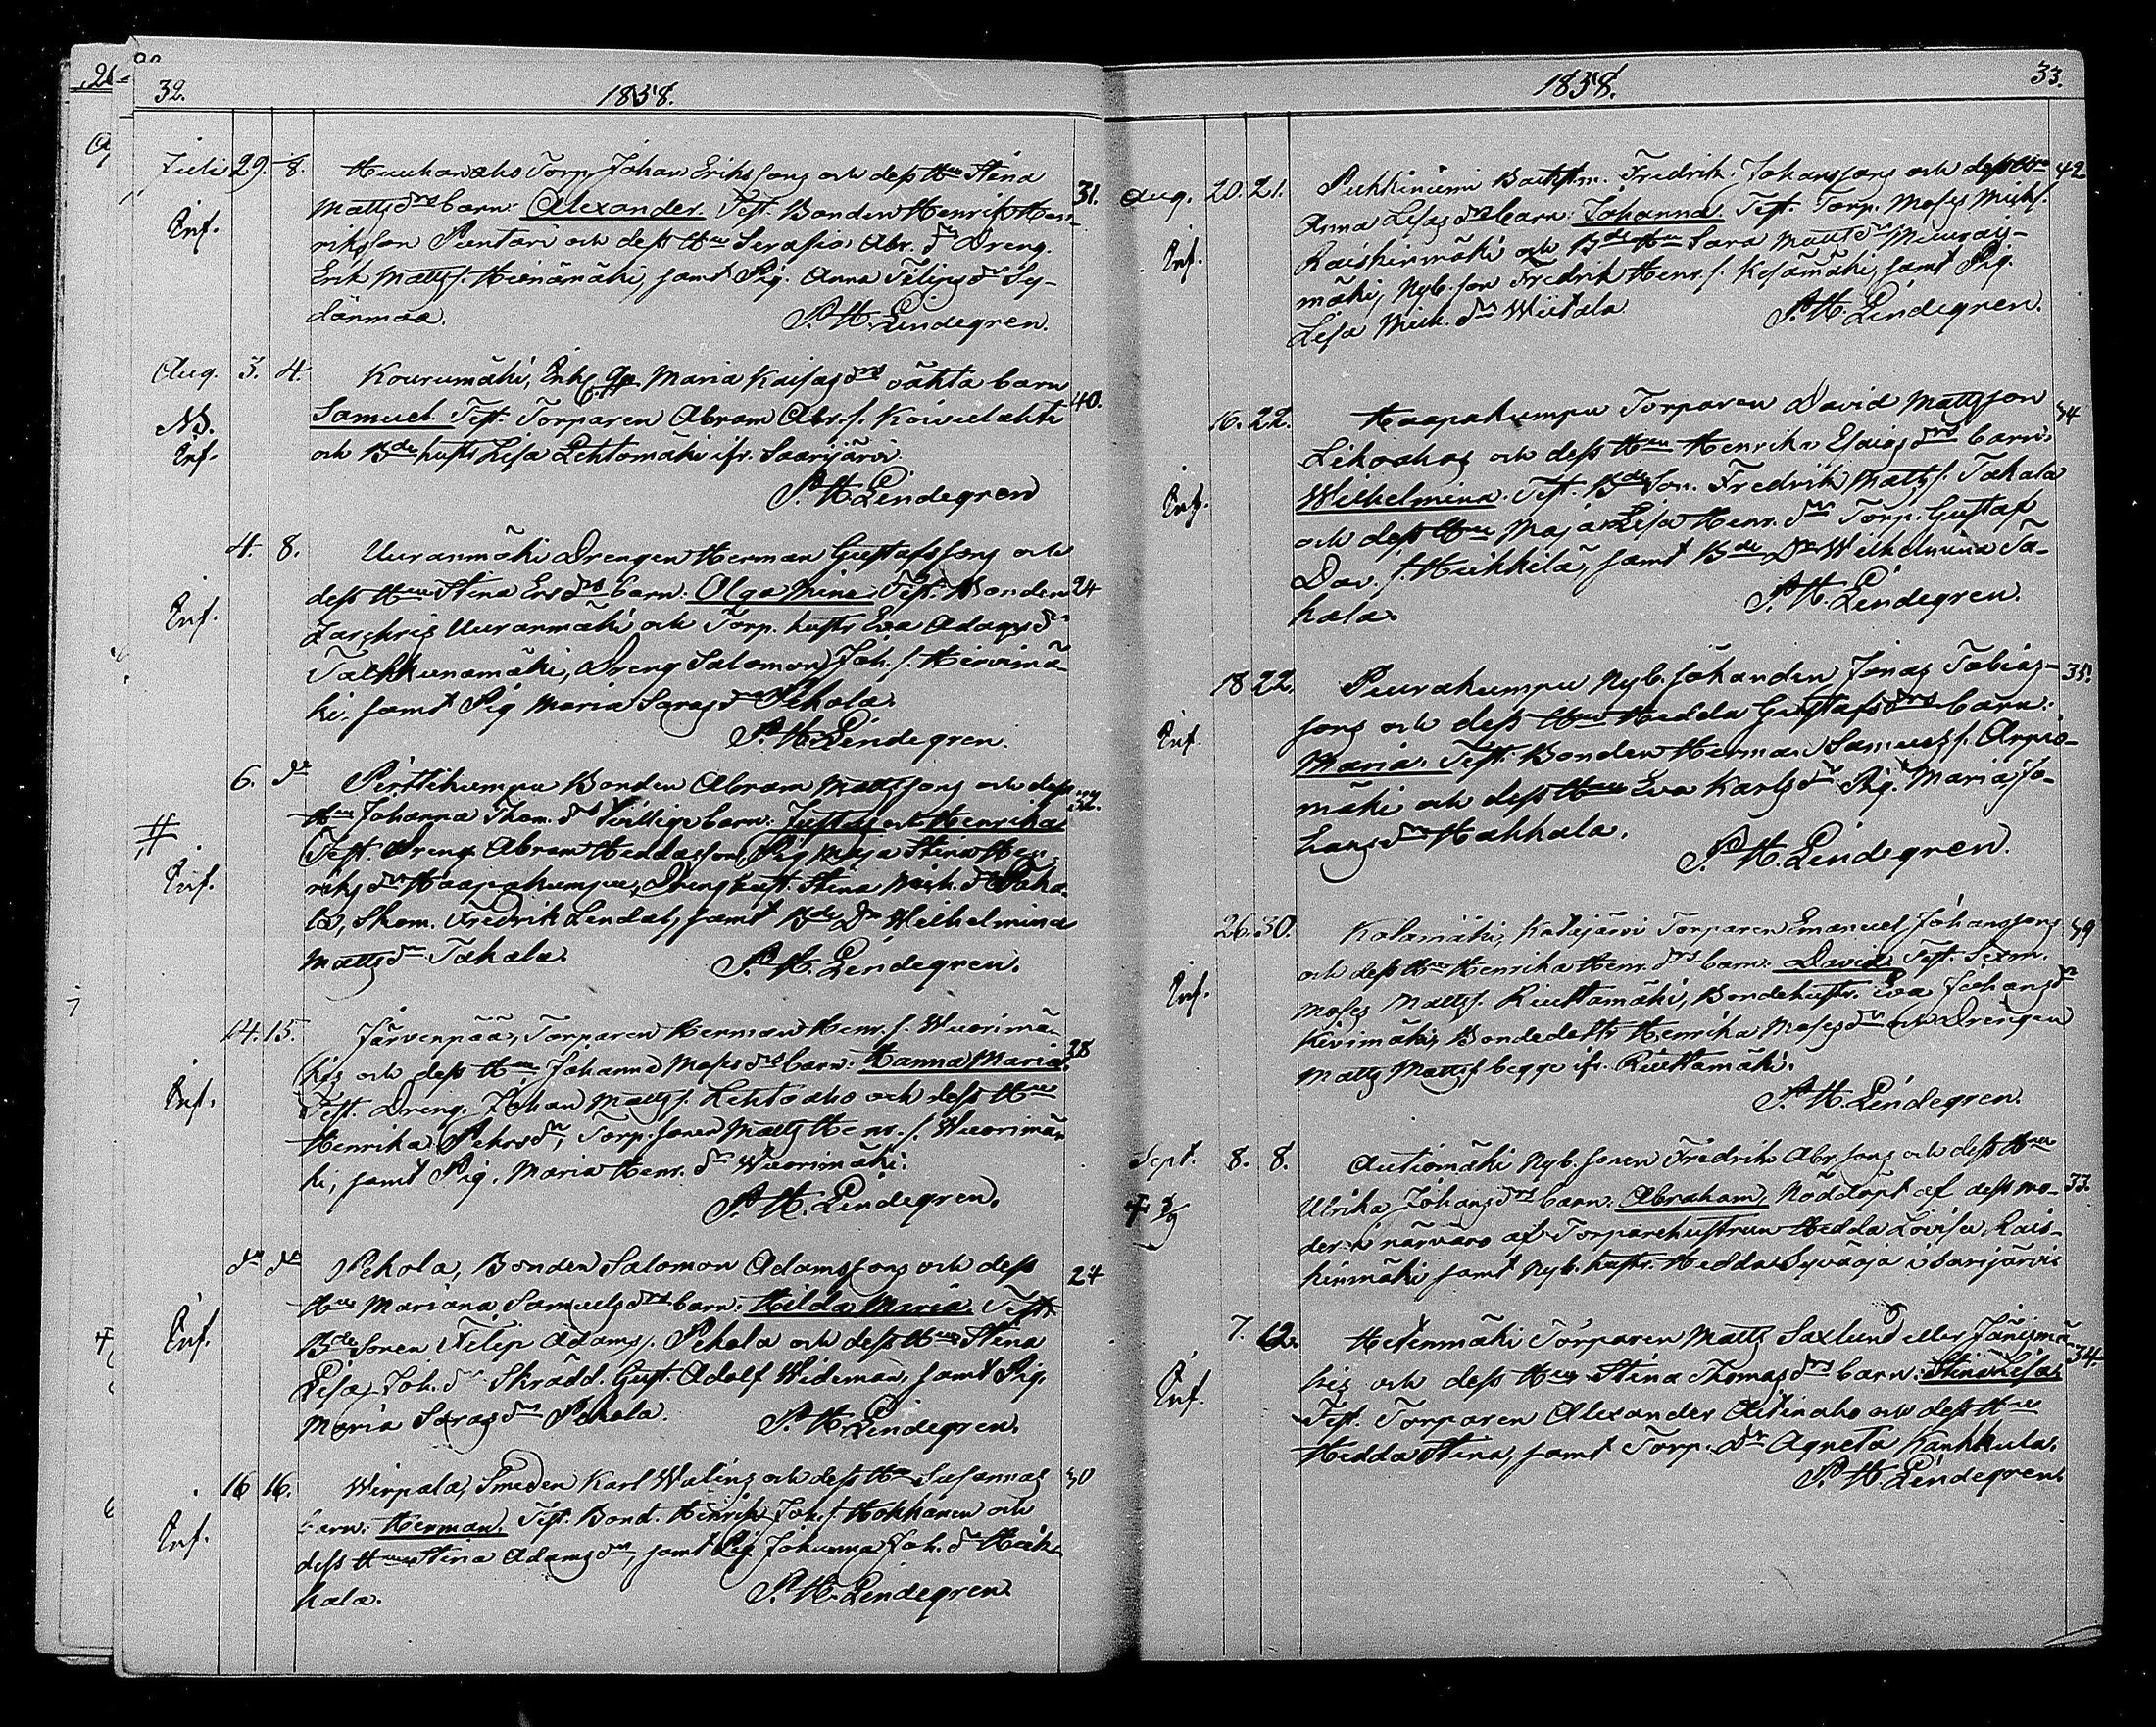 32. 1838.
Juli 29. 8. Huuhanaho Torp. Johan Erikssons och dess Hu Stina
Matts drs barn: Alexander. Test. Bonden Henrik Hen- 31.
Inf. riksson Puntari och dess Hu Serafia Abr. dr Dreng.
Erik Matts s. Heinämäki, samt Pig. Anna Filips dr Sy-
dänmaa. P. H. Lindegren.
Aug. 3. 4. Kourumäki, Maria Kaisas drs oäkta barn 40.
NB. Samuel. Test. Torparen Abram Abr. s. Koivulahti
Inf. och Bde hustr. Lisa Lehtomäki ifr. Saarijärvi.
P. H. Lindegren
4. 8. Uuranmäki Drengen Herman Gustafssons och
dess Hu Stina Ers drs barn: Olga Mina. Test. Bonden 24
Inf. Zachris Uuranmäki och Torp. hustr. Eva Adams dr
Talkkunamäki, Dreng Salomon Joh. s. Hirvimä-
ki, samt Pig Maria Saras dr Pekola.
P. H. Lindegren.
6. do Pirttikumpu Bonden Abram Mattssons och dess
Hu Johanna Thom. drs Tvillige barn: Justus och Henrika
Test. Dreng Abram Heddasson, Pig Maja Stina Hen-
Inf. riks dr Haapakumpu, Dreng hust. Stina Mich. dr Peko-
la, Skom. Fredrik Lendal, samt Bde Dr Wilhelmina
Matts dr Takala. P. H. Lindegren.
14. 15. Järvenpää, Torparen Herman Henr. s. Wuorimä-
kis och dess Hu Johanna Moses drs barn: Hanna Maria. 28
Inf. Test. Dreng. Johan Matts s. Lehtoaho och dess Hu
Henrika Pehrs dr, Torp. sonen Matts Henr. s. Wuorimä-
ki, samt Pig. Maria Henr. dr Wuorimäki.
P. H. Lindegren.
do do Pekola, Bonden Salomon Adamssons och dess 24
Hu Mariana Samuels drs barn: Hilda Maria. Test.
Inf. Bde Sonen Filip Adams s. Pekola och dess Hu Stina
Lisa Joh. dr Skrädd. Gust. Adolf Wideman, samt Pig.
Maria Saras dr Pekola. P. H. Lindegren.
16 16. Wirpala, Smeden Karl Walins och dess Hu Susannas 30
Inf. barn: Herman. Test. Bond. Henrik Joh. s. Hokkanen och
dess Hu Stina Adams dr, samt Pig Johanna Joh. dr
kala. P. H. Lindegren.
1838. 33.
Aug. 20. 21. Backstm. Fredrik Johanssons och dess Hu 42
Anna Lisas drs barn: Johanna. Test. Torp. Moses Mich s.
Inf. Raiskinmäki och Bde Hu Sara Matts dr
mäki, Nyb. son Fredrik Henr. s. Kesämäki, samt Pig.
Lisa Mich. dr Wiitala P. H. Lindegren.
16. 22. Haapakumpu Torparen David Mattsson 34
och dess Hu Henrika Esaias drs barn:
Inf. Wilhelmina. Test. Bde Son. Fredrik Matts s. Takala
och dess Hu Maja Lisa Henr. dr Torp. Gustaf
Dav. s. Heikkilä, samt Bde Dr Wilhelmina Ta-
kala. P. H. Lindegren.
18 22. Peurakumpu Nyb. Jonas Tobias- 35.
sons och dess Hu Hedda Gustafs drs barn:
Inf. Maria. Test. Bonden Herman Samuels s. Arpio-
mäki och dess Hu Eva Karls dr Pig. Maria Jo-
hans dr Hakkala. P. H. Lindegren.
26. 30. Kalamäki, Katajärvi Torparen Emanuel Johanssons 39
och dess Hu Henrika Henr. drs barn: David. Test. Sexm.
Inf. Moses Matts s. Riuttamäki, Bondehustr. Eva Johans dr
Kivimäki, Bondedottr. Henrika Moses dr och Drengen
Matts Matts s begge ifr. Riuttamäki.
P. H. Lindegren.
Sept. 8. 8. Autiomäki Nyb. sonen Fredrik Abr. sons och dess Hu
Ulrika Johans drs barn: Abraham, Nöddöpt af dess mo- 33.
der i närvaro af Torparehustrun Hedda Lovisa Rais-
kinmäki samt Nyb. hustr. Hedda Syväoja i Sarijärvi
7. 12. Heteinmäki Torparen Matts Saxlund eller Jänismä-
kis och dess Hu Stina Thomas drs barn: Stina Lisa. 34.
Inf. Test. Torparen Alexander och dess Hu
Hedda Stina, samt Torp. dr Agneta Kauhkula.
P. H. Lindegren.